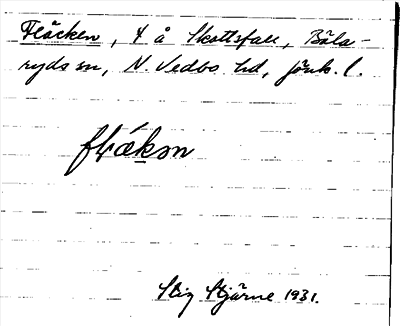 Fläcken, t å Skottsfall, Bäla-
ryds sn, N. Vedbo hd, Jönk. l.
Stig Stjärne 1931.